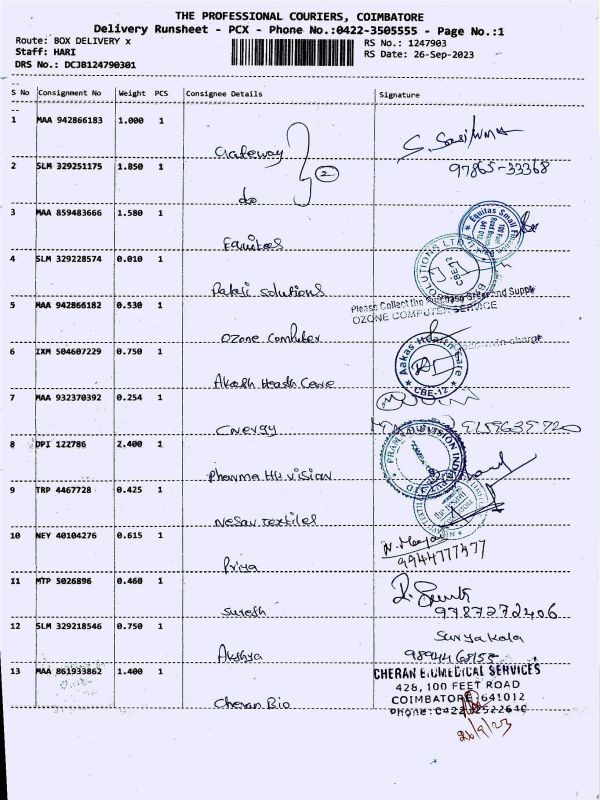 THE PROFESSIONAL COURIERS, COIMBATORE
Delivery Runsheet - PCX - Phone No.:0422-3505555 - Page No.:1
Route: BOX DELIVERY x
RS No.: 1247903
Staff: HARI
RS Date: 26-Sep-2023
DRS No.: DCJB124790301
S No Consignment No Weight PCS Consignee Details Signature
1 MAA 942866183 1.000 1
Gateway
S. Sasikuma
2 SLM 329251175 1.850 1
2
97865-33368
do
3 MAA 859483666 1.580 1
Equitas
Equitas Small
4 SLM 329228574 0.010 1
SOLUTIONS
CBE-12
solutions
5 MAA 942866182 0.530 1
Please Collect the Purchase Order and Supply
OZONE COMPUTER SERVICE
Ozone Computer
6 IXM 504607229 0.750 1
Aakas Health Care
CBE-12
Akash Heasth Care
7 MAA 932370392 0.254 1
Cnergy
8 DPI 122786 2.400 1
VISION INDIA
Pharma Hu vision
9 TRP 4467728 0.425 1
Nesav textiles
10 NEY 40104276 0.615 1
Priya
9944777477
11 MTP 5026896 0.460 1
Suresh
9787272406
12 SLM 329218546 0.750 1
Suryakala
Akshya
9894468155
13 MAA 861933862 1.400 1
CHERAN BIOMEDICAL SERVICES
428, 100 FEET ROAD
COIMBATORE-641012
Cheran Bio
Phone: 0422-2522640
26/9/23